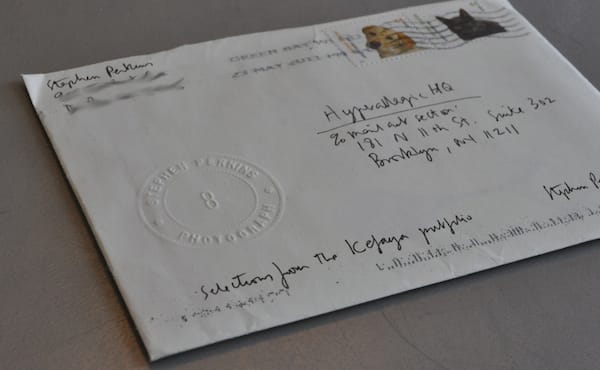 Stephen Perkins
GREEN BAY WI
23 MAY 2011 PM
Hyperallergic HQ
℅ mail art section
181 N 11th St. Suite 302
Brooklyn, NY 11211
STEPHEN PERKINS
8
PHOTOGRAPH
Stephen
Selections from the Kefaya portfolio